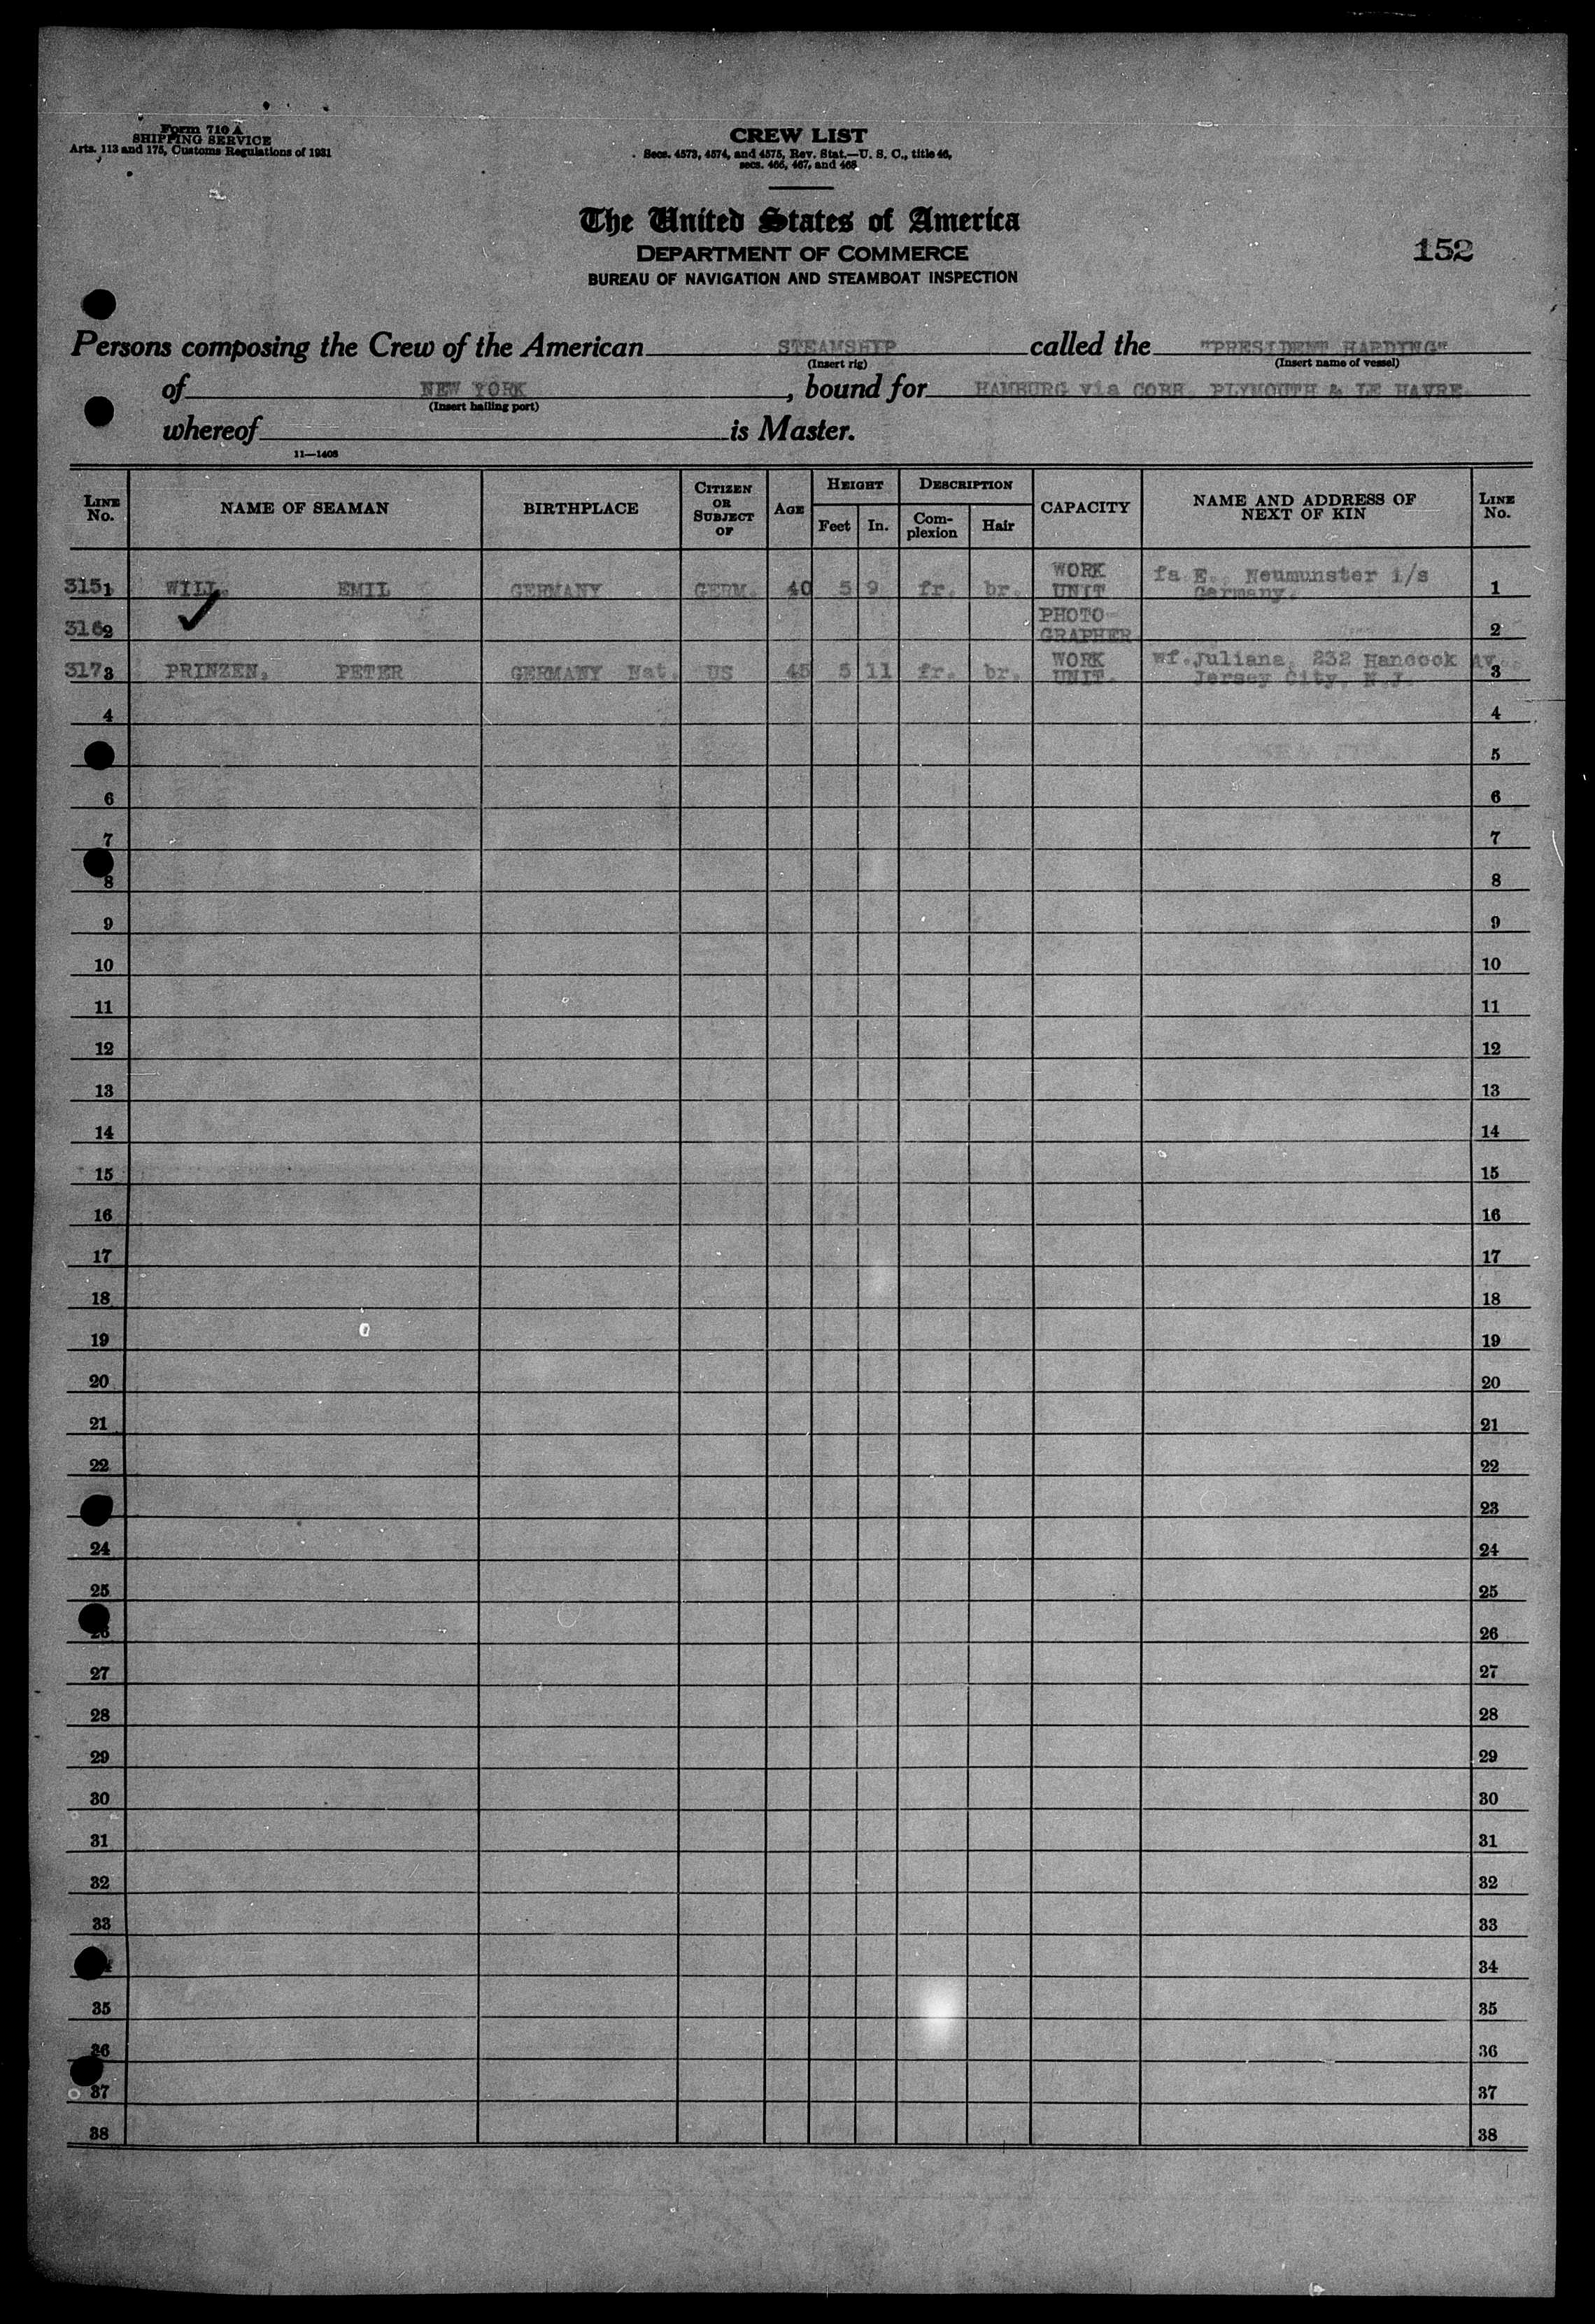 Form 710 A
SHIPPING SERVICE
Arts. 113 and 175, Customs Regulations of 1931
CREW LIST
Secs. 4573, 4574, and 4575, Rev. Stat.—U. S. C., title 46,
secs. 466, 467, and 468
The United States of America
DEPARTMENT OF COMMERCE
BUREAU OF NAVIGATION AND STEAMBOAT INSPECTION
152
Persons composing the Crew of the American STEAMSHIP called the "PRESIDENT HARDING"
(Insert rig) (Insert name of vessel)
of NEW YORK, bound for HAMBURG via COBH PLYMOUTH & LE HAVRE
(Insert hailing port)
whereof is Master.
11—1408
LINE No. NAME OF SEAMAN BIRTHPLACE CITIZEN OR SUBJECT OF AGE HEIGHT Feet In. DESCRIPTION Complexion Hair CAPACITY NAME AND ADDRESS OF NEXT OF KIN LINE No.
315 1 WILL, EMIL GERMANY GERM. 40 5 9 fr. br. WORK UNIT fa E. Neumunster i/s Germany. 1
316 2 PHOTO-GRAPHER 2
317 3 PRINZEN, PETER GERMANY Nat US 45 5 11 fr. br. WORK UNIT. wf. Juliana, 232 Hancock Av. Jersey City, N.J. 3
4 4
5
6 6
7 7
8 8
9 9
10 10
11 11
12 12
13 13
14 14
15 15
16 16
17 17
18 18
19 19
20 20
21 21
22 22
23
24 24
25 25
26 26
27 27
28 28
29 29
30 30
31 31
32 32
33 33
34
35 35
36 36
37 37
38 38